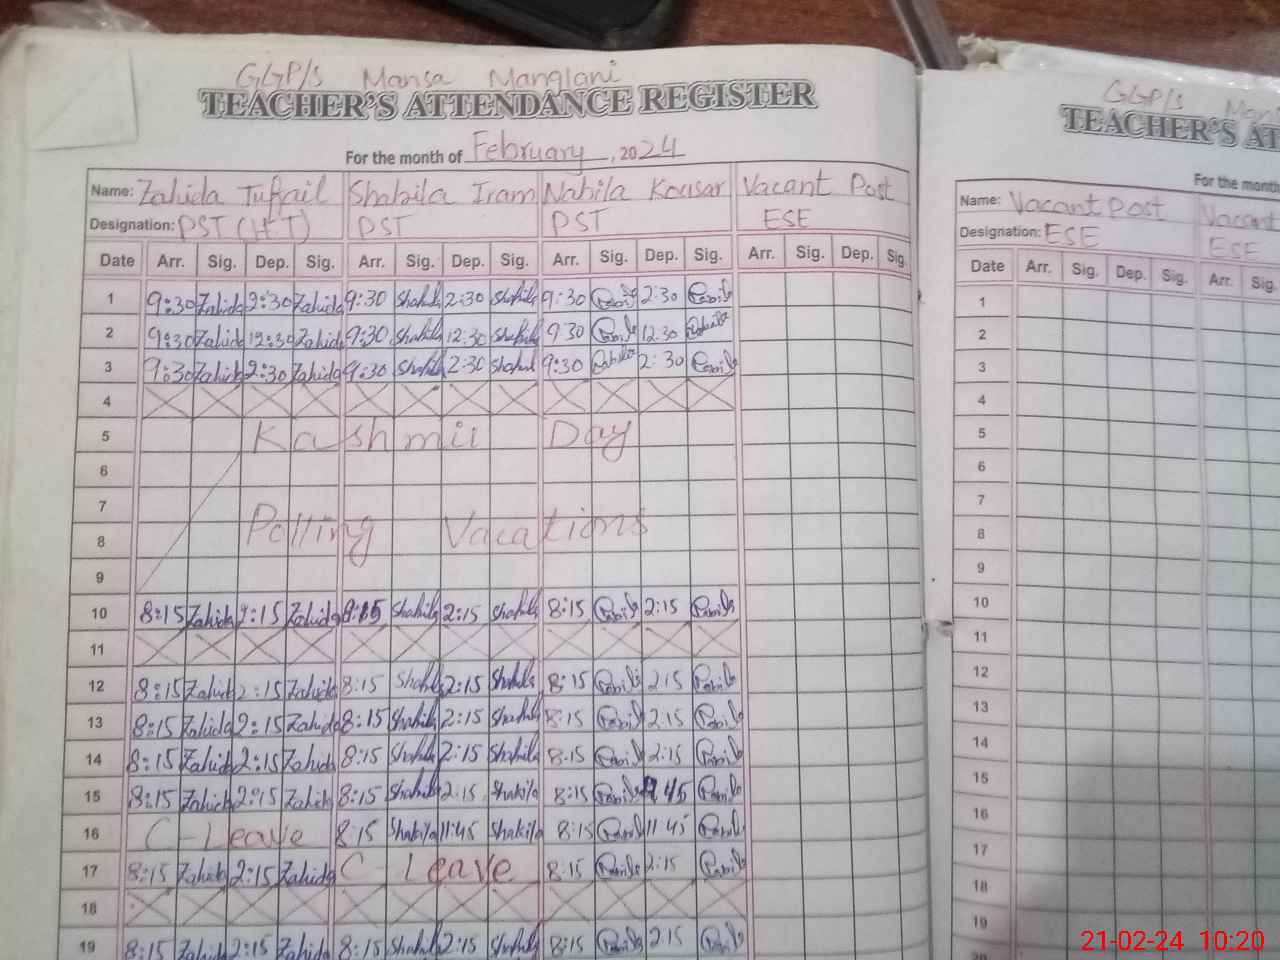 GGP/S Mansa Manglani
TEACHER'S ATTENDANCE REGISTER
For the month of February, 2024
Name: Zahida Tufail Shahila Iram Nabila Kousar Vacant Post
Designation: PST (H.T) PST PST ESE
Date Arr. Sig. Dep. Sig. Arr. Sig. Dep. Sig. Arr. Sig. Dep. Sig. Arr. Sig. Dep. Sig.
1 9:30 Zahida 2:30 Zahida 9:30 Shahila 2:30 Shahila 9:30 2:30
2 9:30 Zahida 12:30 Zahida 9:30 Shahila 12:30 Shahila 9:30 12:30
3 9:30 Zahida 2:30 Zahida 9:30 Shahila 2:30 Shahila 9:30 2:30
4
5 Kashmir Day
6
7
8 Polling Vacations
9
10 8:15 Zahida 2:15 Zahida 8:15 Shahila 2:15 Shahila 8:15 2:15
11
12 8:15 Zahida 2:15 Zahida 8:15 Shahila 2:15 Shahila 8:15 2:15
13 8:15 Zahida 2:15 Zahida 8:15 Shahila 2:15 Shahila 8:15 2:15
14 8:15 Zahida 2:15 Zahida 8:15 Shahila 2:15 Shahila 8:15 2:15
15 8:15 Zahida 2:15 Zahida 8:15 Shahila 2:15 Shakila 8:15 45
16 C-Leave 8:15 Shakila 11:45 Shakila 8:15 11:45
17 8:15 Zahida 2:15 Zahida C Leave 8:15 2:15
18
19 8:15 Zahida 2:15 Zahida 8:15 Shahila 2:15 Shahila 8:15 2:15
GGP/S
TEACHER'S
For the month
Name: Vacant Post Vacant
Designation: ESE ESE
Date Arr. Sig. Dep. Sig. Arr. Sig.
1
2
3
4
5
6
7
8
9
10
11
12
13
14
15
16
17
18
19
21-02-24 10:20